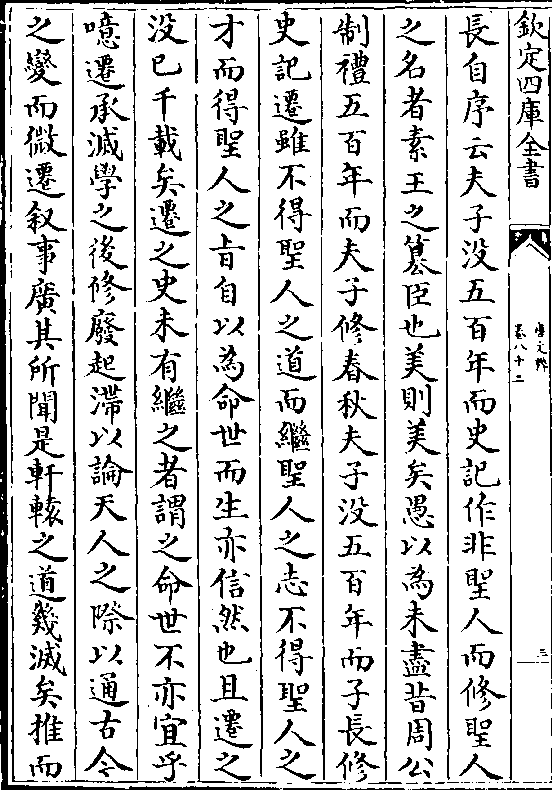 欽定四庫全書
唐文粹
卷八十二
三
長自序云夫子没五百年而史記作非聖人而修聖人
之名者素王之簒臣也美則美矣愚以為未盡昔周公
制禮五百年而夫子修春秋夫子没五百年而子長修
史記遷雖不得聖人之道而繼聖人之志不得聖人之
才而得聖人之旨自以為命世而生亦信然也且遷之
没已千載矣遷之史未有繼之者謂之命世不亦宜乎
噫遷承滅學之後修廢起滯以論天人之際以通古今
之變而微遷叙事廣其所聞是軒轅之道幾滅矣推而